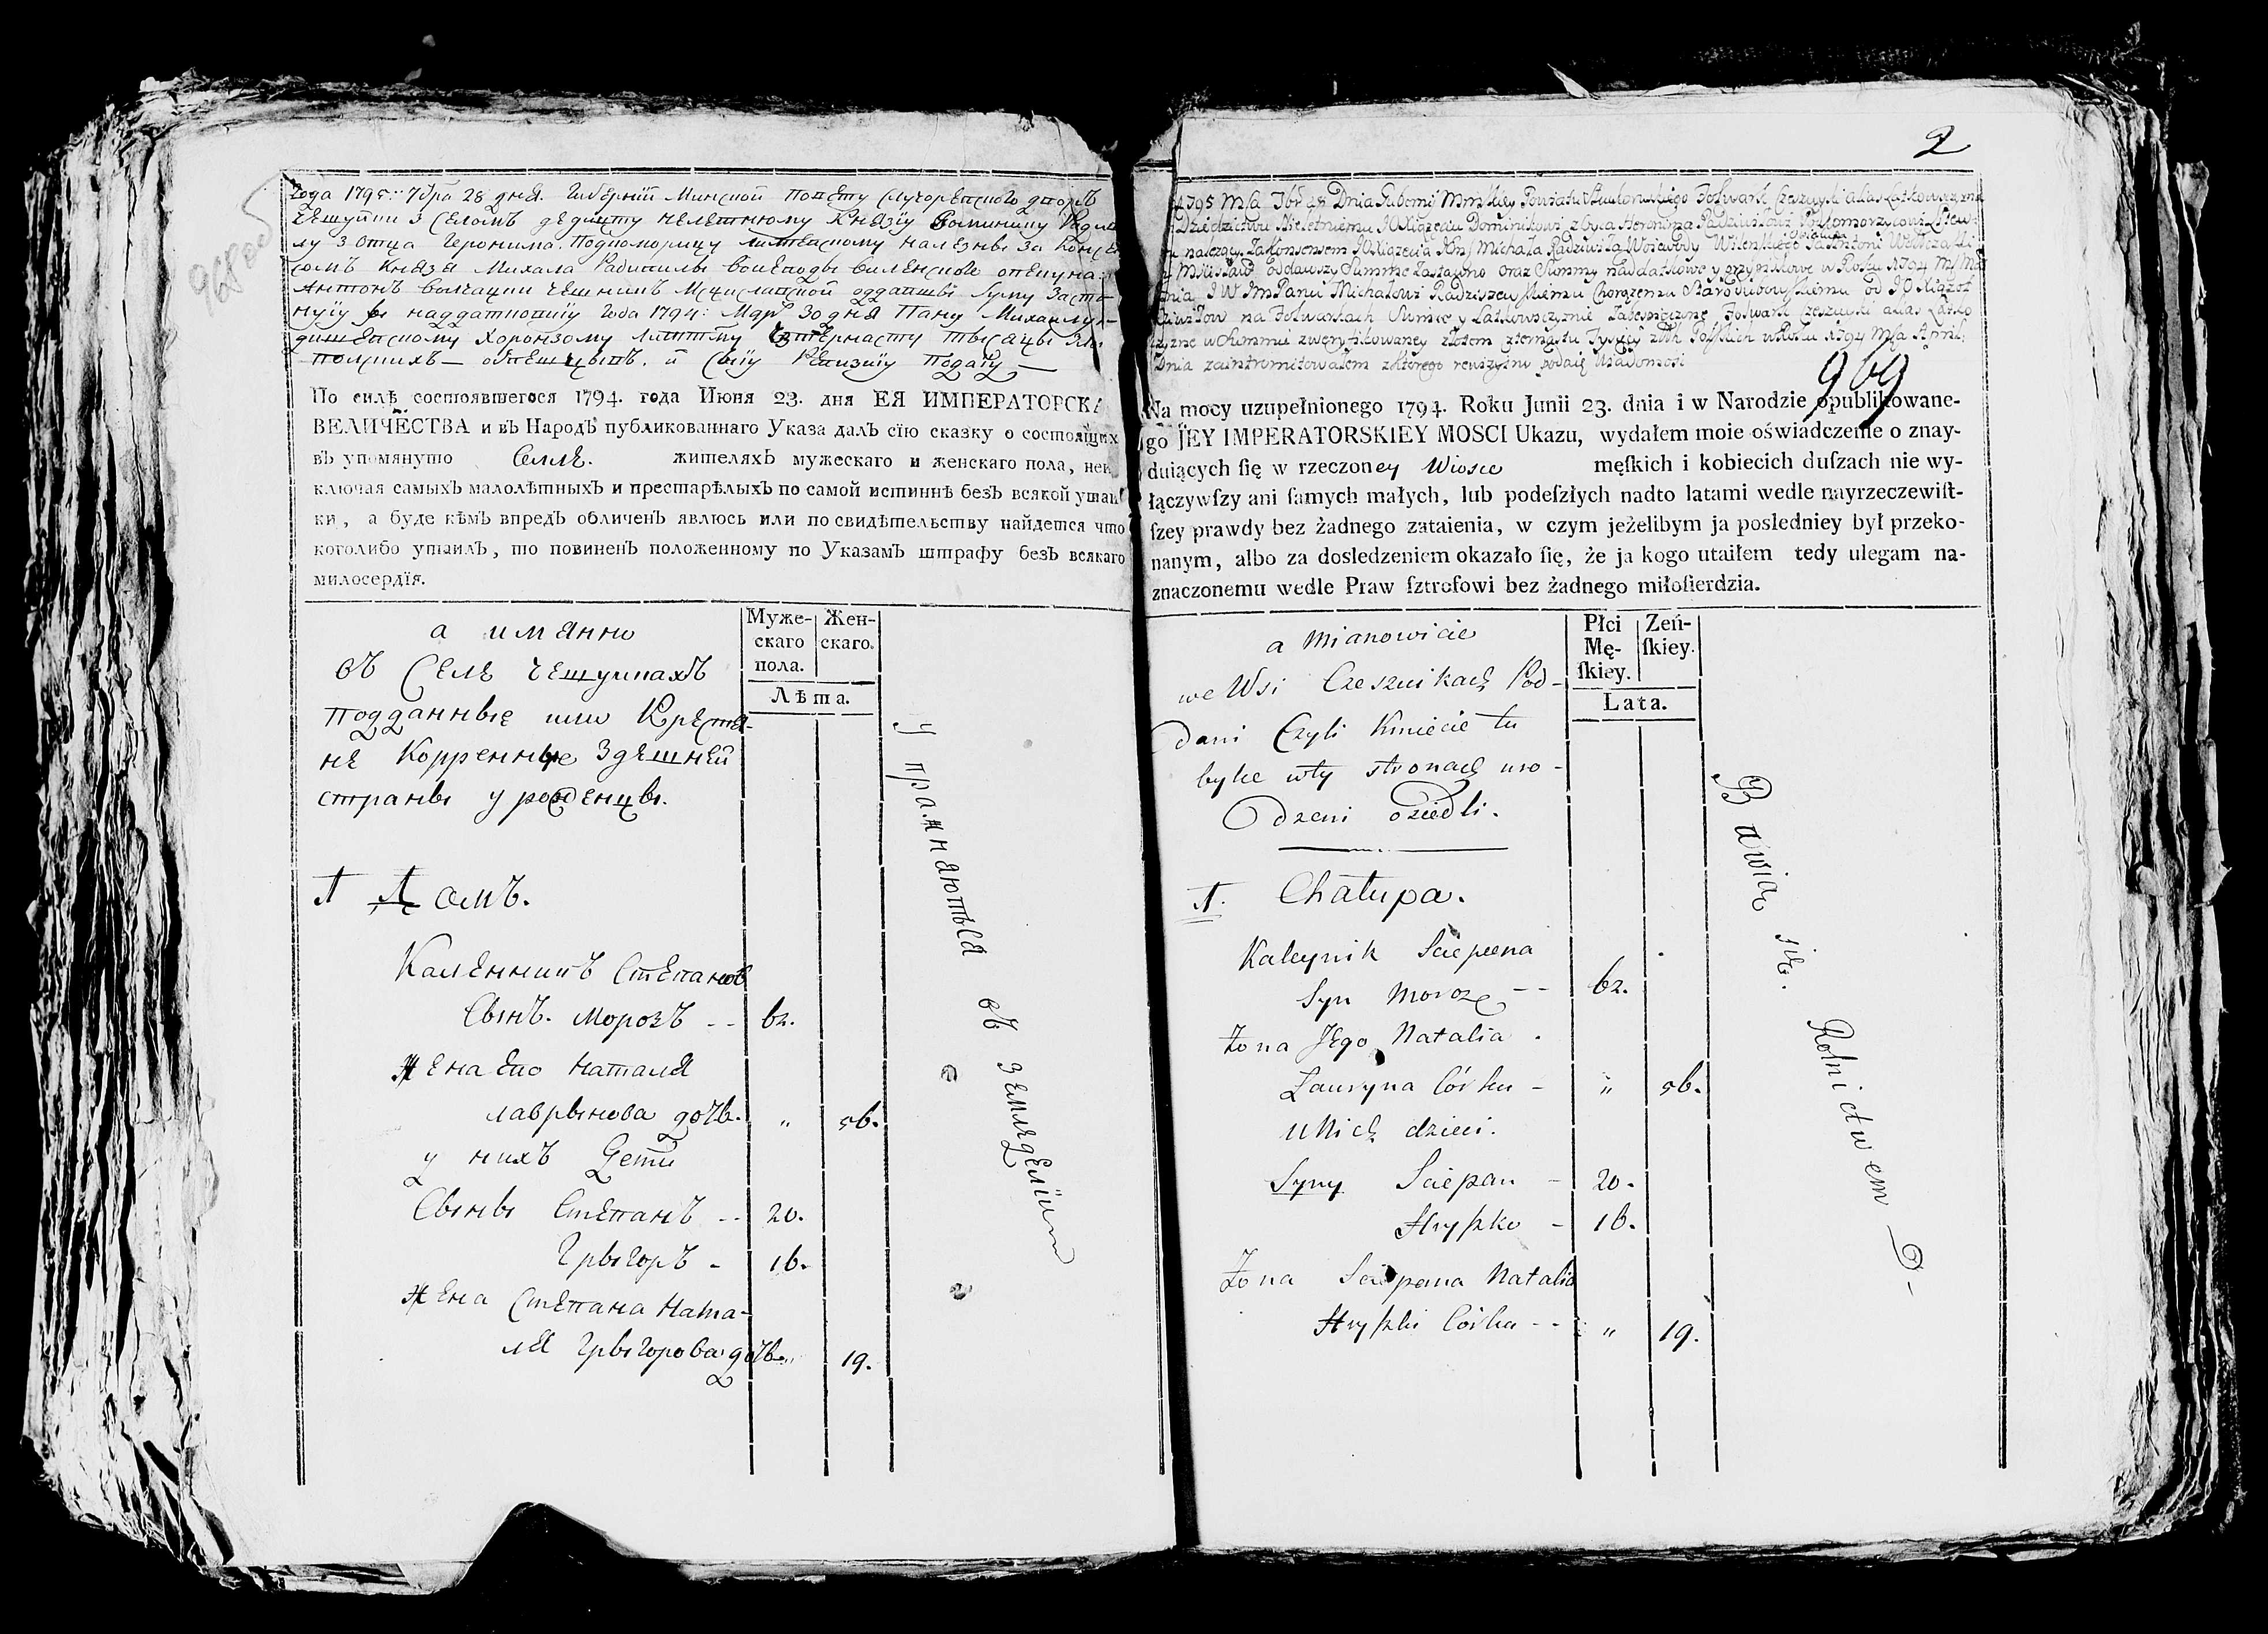 2
968 об
Года 1795: 7бра 28 дня. Губернїи Минской Повету Слуцорецкого двор
чешуйки з селомъ дедицту нелетнюму Князїу Доминику Радзи
лу з отца Геронима. Подкоморицу литевскому належы за Консе
сомъ Князя Михала Радивилы воиеводы виленского опекуна
Антонъ чешникъ Мсциславской оддавши суму заста
нуїу наддатковуїу Года 1794: Мар 30 дня Пану Михаилу
хоронзому
польнихъ и сїїу Ревизїїу подаїу
По силѣ состоявшегося 1794. года Июня 23. дня ЕЯ ИМПЕРАТОРСКА
ВЕЛИЧЕСТВА и въ Народъ публикованнаго Указа далъ сїю сказку о состоящих
въ упомянуто Селле. жителяхъ мужескаго и женскаго пола, неи
ключая самыхъ малолѣтныхъ и престарѣлыхъ по самой истиннѣ безъ всякой утаи
ки, а буде кѣмъ впредъ обличенъ явлюсь или по свидѣтельству найдется что
коголибо утаилъ, то повиненъ положенному по Указамъ штрафу безъ всякаго
милосердїя.
Муже-
скаго
пола.
Жен-
скаго.
Лѣта.
а имянно
въ Селе чешуйкахъ
подданные или Крестя-
не Корренные Здешней
страны урожденцы.
1 Домъ.
Каленникъ Степановъ
Сынъ. Морозъ -- 62.
Жена Его Наталя
лаврынова дочь. " 56.
у нихъ Дети
Сыны Степанъ -- 20.
Грыгоръ - 16.
Жена Степана Ната-
ля Грыгорова дочь. " 19.
Упражняютъся въ земляделїи
1795 M/ca 7br 28 Dnia Guberni Mińskiey Powiatu Folwark Czeszuyki alias Łatkowszyzna
Dziedzictwu Nieletniemu JO Xiążęciu Dominikowi z Oyca Heronima Radziwiłłowi Podkomorzycowi Litew:
należący. Za Konsensem JO Xiążęcia Jm/ Michała Radziwiłła Woiewody Wileńskiego Opiekuna Ja Antoni
oddawszy Summę Zastawną oraz Summy naddatkowe y w Roku 1794 M/ Ma
Dnia JW Jm Panu Michałowi Radziszewskiemu Chorążemu Starodubowskiemu od JO Xiążąt
na Folwarkach y Łatkowszczyznie Folwark Czeszuiki alias Łatko
w Summu zweryfikowaney złotem czternastu Tysięcy złłch Polskich w Roku 1794 M/ca April:
Dnia zaintromitowałem z którego rewizyiną podaię wiadomość
969
Na mocy uzupełnionego 1794. Roku Junii 23. dnia i w Narodzie opublikowane-
go JEY IMPERATORSKIEY MOSCI Ukazu, wydałem moie oświadczenie o znay-
duiących ſię w rzeczoney Wiosce męſkich i kobiecich duſzach nie wy-
łączywſzy ani ſamych małych, lub podeſzłych nadto latami wedle nayrzeczewiſt-
ſzey prawdy bez żadnego zataienia, w czym jeżelibym ja posledniey był przeko-
nanym, albo za dosledzeniem okazało ſię, że ja kogo utaiłem tedy ulegam na-
znaczonemu wedle Praw ſztrofowi bez żadnego miłoſierdzia.
Płci
Mę-
ſkiey.
Zeń-
ſkiey.
Lata.
a mianowicie
we Wsi Czeszuikach Pod-
Dani Czyli Kmiecie tu
byłe w tych stronach uro-
Dzeni osiedli.
1. Chałupa.
Kaleynik Sciepena
Syn Moroz -- 62.
Żona Jego Natalia
Lauryna Córka - " 56.
u Nich dzieci.
Syny Sciepan - 20.
Hryszko - 16.
Żona Sciepana Natalia
Hryszki Córka -- " 19.
Bawią się. Rolnictwem